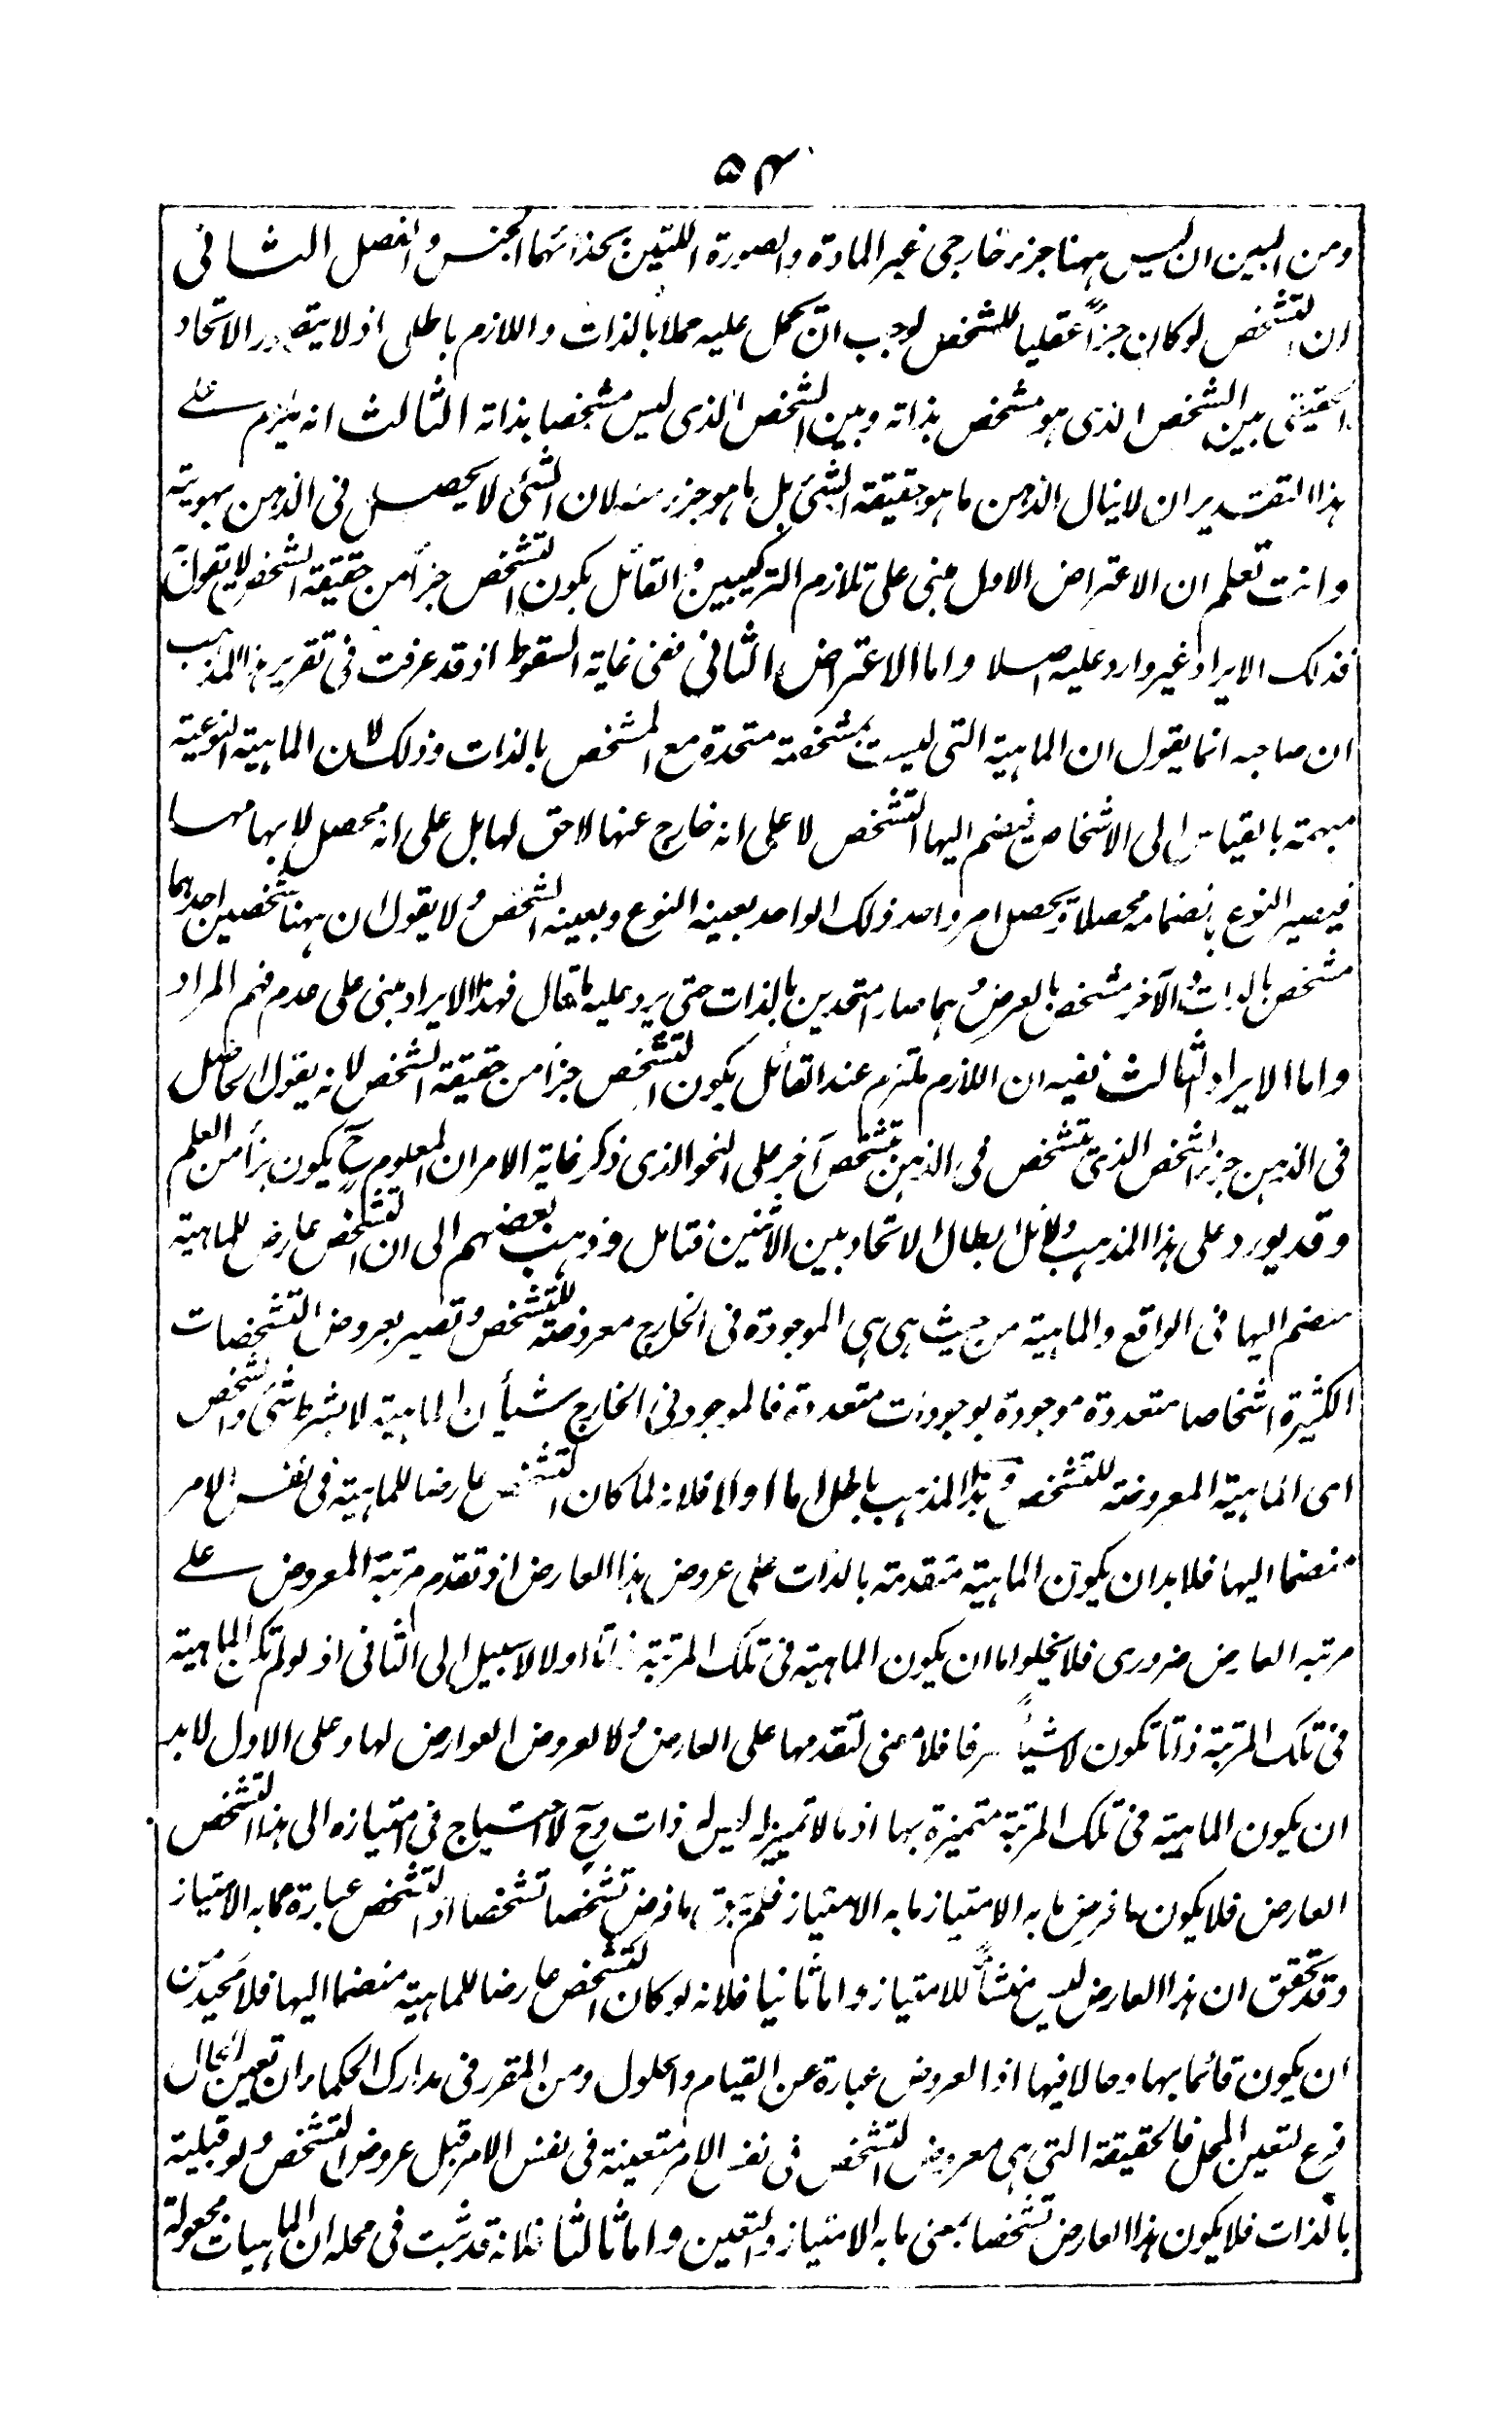 ۵۴
ومن البين ان ليس ههنا جزء خارجى غير المادة والصورة اللتين بحذائهما الجنس والفصل الثانى
ان التشخص لو كان جزأ عقليا للشخص لوجب ان يحمل عليه حملا بالذات واللازم باطل اذ لا يتصور الاتحاد
الحقيقى بين الشخص الذى هو مشخص بذاته وبين الشخص الذى ليس مشخصا بذاته الثالث انه يلزم على
هذا التقدير ان لا ينال الذهن ما هو حقيقة الشئ بل ما هو جزء منه لان الشئ لا يحصل فى الذهن بهويته
وانت تعلم ان الاعتراض الاول مبنى على تلازم التركيبين والقائل بكون التشخص جزأ من حقيقة الشخص لا يقول به
فذلك الايراد غير وارد عليه اصلا واما الاعتراض الثانى ففى غاية السقوط اذ قد عرفت فى تقرير هذا المذهب
ان صاحبه انما يقول ان الماهية التى ليست بمشخصة متحدة مع المشخص بالذات وذلك لان الماهية النوعية
مبهمة بالقياس الى الاشخاص فينضم اليها التشخص لا على انه خارج عنها لاحق لها بل على انه محصل لابهامها
فيصير النوع بانضمامه محصلا ويحصل امر واحد ذلك الواحد بعينه النوع وبعينه الشخص ولا يقول ان ههنا شخصين احدهما
مشخص بالذات والآخر مشخص بالعرض وهما صارا متحدين بالذات حتى يرد عليه ما قال فهذا الايراد مبنى على عدم فهم المراد
واما الايراد الثالث ففيه ان اللازم ملتزم عند القائل بكون التشخص جزأ من حقيقة الشخص لانه يقول الحاصل
فى الذهن جزء الشخص الذى يتشخص فى الذهن بتشخص آخر على النحو الذى ذكر غاية الامر ان المعلوم ح يكون جزأ من العلم
وقد يورد على هذا المذهب دلائل ابطال الاتحاد بين الاثنين فتامل وذهب بعضهم الى ان التشخص عارض للماهية
منضم اليها فى الواقع والماهية من حيث هى هى الموجودة فى الخارج معروضة للتشخص وتصير بعروض التشخصات
الكثيرة اشخاصا متعددة موجودة بوجودات متعددة فالموجود فى الخارج شيأن الماهية لا بشرط شئ والشخص
اى الماهية المعروضة للتشخص وهذا المذهب باطل اما اولا فلانه لما كان التشخص عارضا للماهية فى نفس الامر
منضما اليها فلا بد ان يكون الماهية متقدمة بالذات على عروض هذا العارض اذ تقدم مرتبة المعروض على
مرتبة العارض ضرورى فلا يخلو اما ان يكون الماهية فى تلك المرتبة ذاتا اولا لا سبيل الى الثانى اذ لو لم تكن الماهية
فى تلك المرتبة ذاتا تكون لا شيأ صرفا فلا معنى لتقدمها على العارض ولا لعروض العوارض لها وعلى الاول لا بد
ان يكون الماهية فى تلك المرتبة متميزة بها اذ ما لا تميز له ليس له ذات وح لا احتياج فى امتيازه الى هذا التشخص
العارض فلا يكون ما فرض ما به الامتياز ما به الامتياز فلم يبق ما فرض تشخصا تشخصا اذ التشخص عبارة عما به الامتياز
وقد تحقق ان هذا العارض ليس منشأ للامتياز واما ثانيا فلانه لو كان التشخص عارضا للماهية منضما اليها فلا محيد من
ان يكون قائما بها وحالا فيها اذ العروض عبارة عن القيام والحلول ومن المقرر فى مدارك الحكماء ان تعين الحال
فرع لتعين المحل فالحقيقة التى هى معروض التشخص فى نفس الامر متعينة فى نفس الامر قبل عروض التشخص ولو قبلية
بالذات فلا يكون هذا العارض تشخصا بمعنى ما به الامتياز والتعين واما ثالثا فلانه قد ثبت فى محله ان الماهيات مجعولة